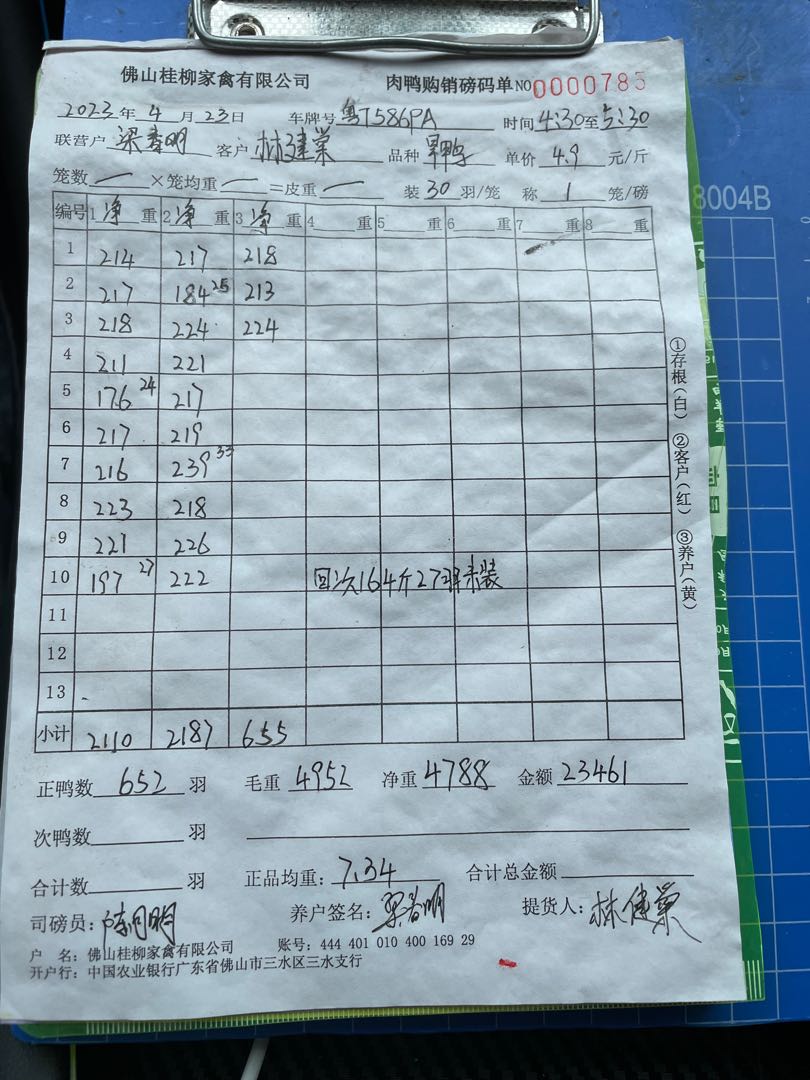 佛山桂柳家禽有限公司 肉鸭购销磅码单 NO 0000785
2023年4月23日 车牌号粤T586PA 时间4:30至5:30
联营户梁春明 客户林健業 品种 单价4.9元/斤
笼数一×笼均重一=皮重一 装30羽/笼 称1笼/磅
编号 1净重 2净重 3净重 4重 5重 6重 7重 8重
1 214 217 218
2 217 184 25 213
3 218 224 224
4 211 221
5 176 24 217
6 217 219
7 216 239 33
8 223 218
9 221 226
10 197 27 222 回次164斤27羽未装
11
12
13
小计 2110 2187 655
正鸭数652羽 毛重4952 净重4788 金额23461
次鸭数 羽
合计数 羽 正品均重：7.34 合计总金额
司磅员： 养户签名：梁春明 提货人：林健業
户 名：佛山桂柳家禽有限公司 账号：444 401 010 400 169 29
开户行：中国农业银行广东省佛山市三水区三水支行
①存根(白) ②客户(红) ③养户(黄)
8004B